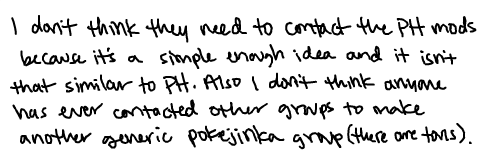 I don't think they need to contact the PH mods
because it's a simple enough idea and it isn't
that similar to PH. Also I don't think anyone
has ever contacted other groups to make
another generic pokejinka group (there are tons).